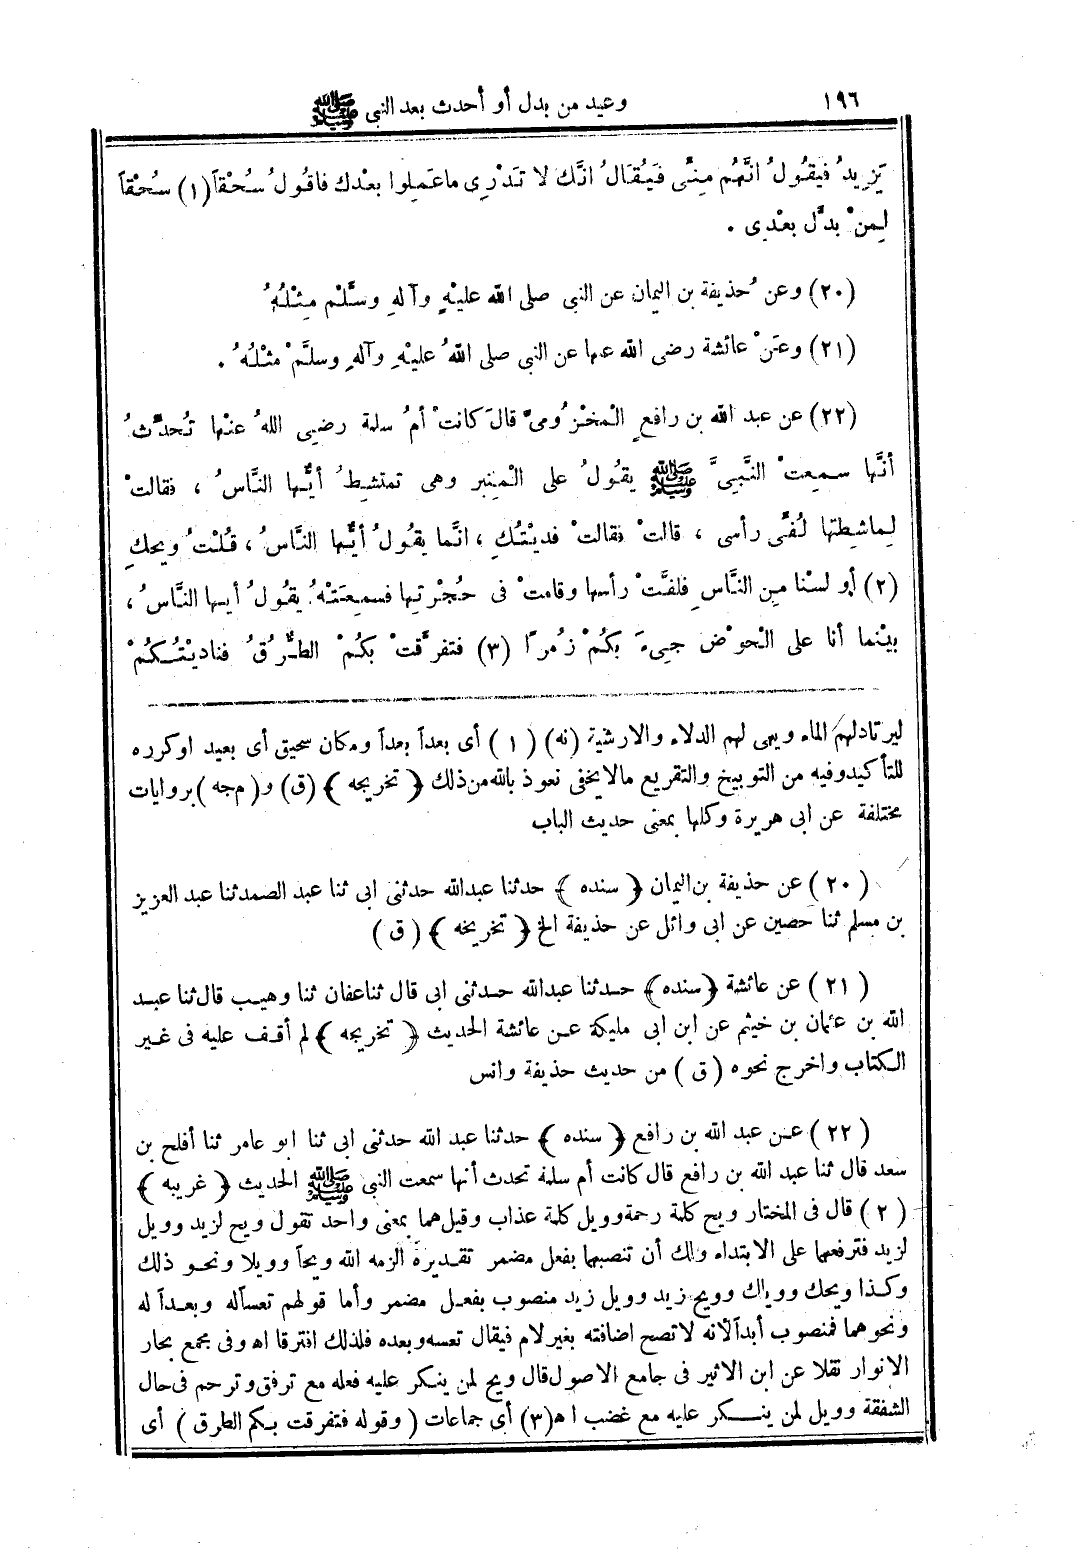 ١٩٦ وعيد من بدل أو أحدث بعد النبى ﷺ
يَزِيدُ فيقُولُ انَّهُم مِنِّى فَيُقَالُ انَّكَ لا تَدْرِى ماعَمِلوا بعْدك فاقُولُ سُحْقاً (١) سُحْقاً
لِمنْ بدَّل بعْدِى .
(٢٠) وعن ُحذيفة بن اليمان عن النبى صلى الله عليْهِ وآلهِ وسَلَّم مِثْلُهُ
(٢١) وعَنْ عائشة رضى الله عنها عن النبى صلى اللهُ عليْهِ وآلهِ وسلَّمْ مثْلُهُ .
(٢٢) عن عبد الله بن رافعٍ الْمخْزُومىّ قالَ كانتْ أمُ سلمة رضيى اللهُ عنْها تُحدَّثُ
أنَّها سمِعتْ النَّبِيَّ ﷺ يقُولُ على الْمِنبر وهى تمتشِطُ أيُّها النَّاسُ ، فقالتْ
لِماشِطتِها لُفِّى رأسى ، قالتْ فقالتْ فديْتُكِ ، انَّما يقُولُ أيُّها النَّاسُ ، قُلْتُ ويحكِ
(٢) أو لسْنا مِن النَّاسِ فلفَّتْ رأسها وقامتْ فى حُجْرتِها فسمِعتْهُ يقُولُ أيها النَّاسُ ،
بيْنما أنا على الْحوْض جِىءَ بكُمْ زُمرًا (٣) فتفرقتْ بكُمْ الطُّرُقُ فناديْتُكُمْ
ليرتادلهم الماء ويهى لهم الدلاء والارشية (نه) (١) أى بعداً بعداً ومكان سحيق أى بعيد اوكرره
للتأكيدوفيه من التوبيخ والتقريع مالايخفى نعوذ بالله من ذلك ﴿ تخريجه ﴾ (ق) و(م جه) بروايات
مختلفة عن ابى هريرة وكلها بمعنى حديث الباب
(٢٠) عن حذيفة بن اليمان ﴿ سنده ﴾ حدثنا عبدالله حدثنى ابى ثنا عبد الصمدثنا عبد العزيز
بن مسلم ثنا حصين عن ابى وائل عن حذيفة الخ ﴿ تخريجه ﴾ (ق)
(٢١) عن عائشة ﴿سنده﴾ حدثنا عبدالله حدثنى ابى قال ثناعفان ثنا وهيب قال ثنا عبد
الله بن عثمان بن خيثم عن ابن ابى مليكة عن عائشة الحديث ﴿ تخريجه ﴾ لم أقف عليه فى غير
الكتاب واخرج نحوه (ق) من حديث حذيفة وانس
(٢٢) عن عبد الله بن رافع ﴿ سنده ﴾ حدثنا عبد الله حدثنى ابى ثنا ابو عامر ثنا أفلح بن
سعد قال ثنا عبد الله بن رافع قال كانت أم سلمة تحدث أنها سمعت النبى ﷺ الحديث ﴿ غريبه ﴾
(٢) قال فى المختار ويح كلمة رحمة وويل كلمة عذاب وقيل هما بمعنى واحد تقول ويح لزيد وويل
لزيد فترفعهما على الابتداء ولك أن تنصبهما بفعل مضمر تقديره ألزمه الله ويحاً وويلا ونحو ذلك
وكذا ويحك وويلك وويح زيد وويل زيد منصوب بفعل مضمر وأما قولهم تعسا له وبعداً له
ونحوهما فمنصوب أبداً لانه لاتصح اضافته بغير لام فيقال تعسه وبعده فلذلك افترقا اه وفى مجمع بحار
الانوار نقلا عن ابن الاثير فى جامع الاصول قال ويح لمن ينكر عليه فعله مع ترفق وترحم فى حال
الشفقة وويل لمن ينكر عليه مع غضب اه (٣) أى جماعات (وقوله فتفرقت بكم الطرق) أى